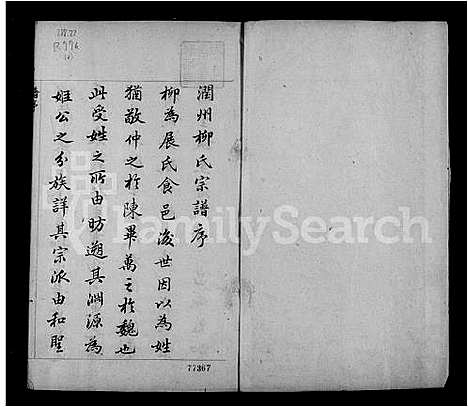 潤州柳氏宗譜序
柳為展氏食邑後世因以為姓
猶敬仲之於陳畢萬之於魏也
此受姓之所由昉遡其淵源為
姬公之分族詳其宗派由和聖
FamilySearch
77367